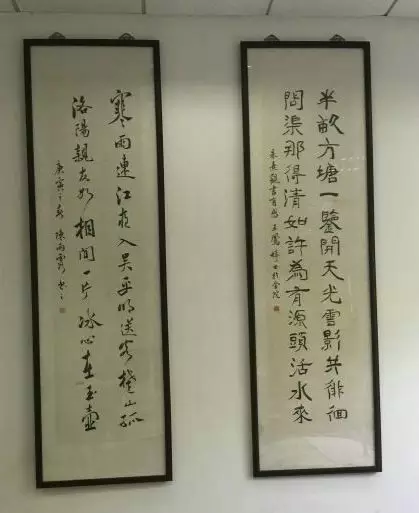 半畝方塘一鑒開天光雲影共徘徊
問渠那得清如許為有源頭活水來
朱熹觀書有感 王鳳
寒雨連江夜入吳平明送客楚山孤
洛陽親友如相問一片冰心在玉壺
庚寅之春 陳雨 书之